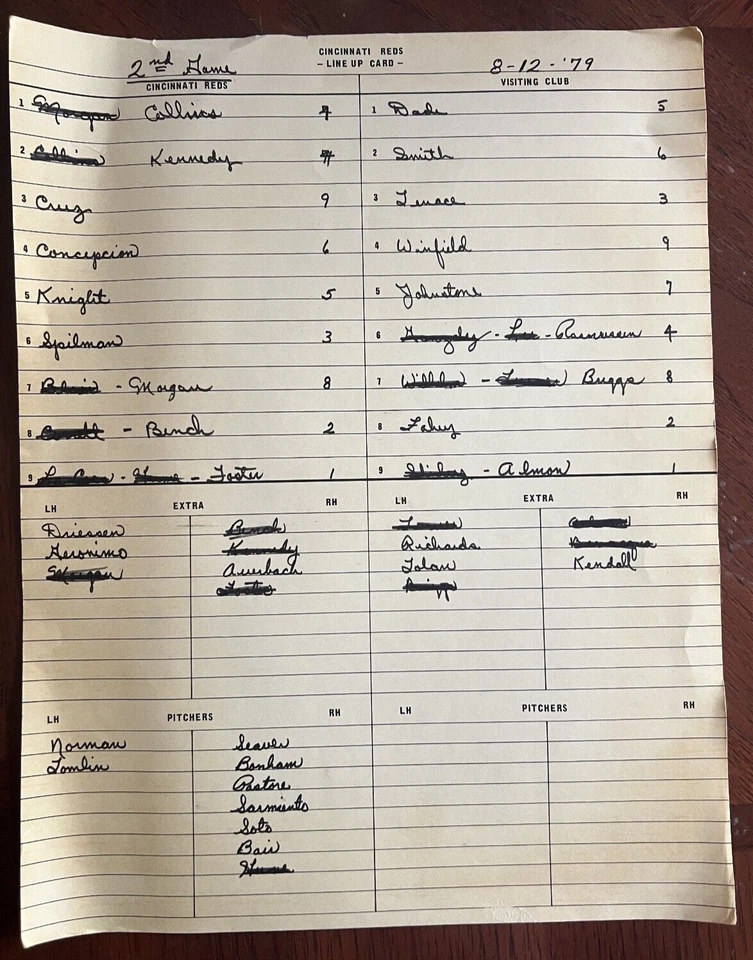 CINCINNATI REDS
2nd Game - LINE UP CARD - 8-12-'79
CINCINNATI REDS VISITING CLUB
1 Morgan Collins 7 1 Dade 5
2 Collins Kennedy 4 2 Smith 6
3 Cruz 9 3 Tenace 3
4 Concepcion 6 4 Winfield 9
5 Knight 5 5 Johnstone 7
6 Spilman 3 6 - - Rasmussen 4
7 Blair - Morgan 8 7 - Briggs 8
8 Correll - Bench 2 8 Fahey 2
9 La Coss - Hume - Foster 1 9 - Almon 1
LH EXTRA RH LH EXTRA RH
Driessen Bench Turner
Geronimo Kennedy Richards
Morgan Auerbach Tolan Kendall
Foster Briggs
LH PITCHERS RH LH PITCHERS RH
Norman Seaver
Tomlin Bonham
Pastore
Sarmiento
Soto
Bair
Hume